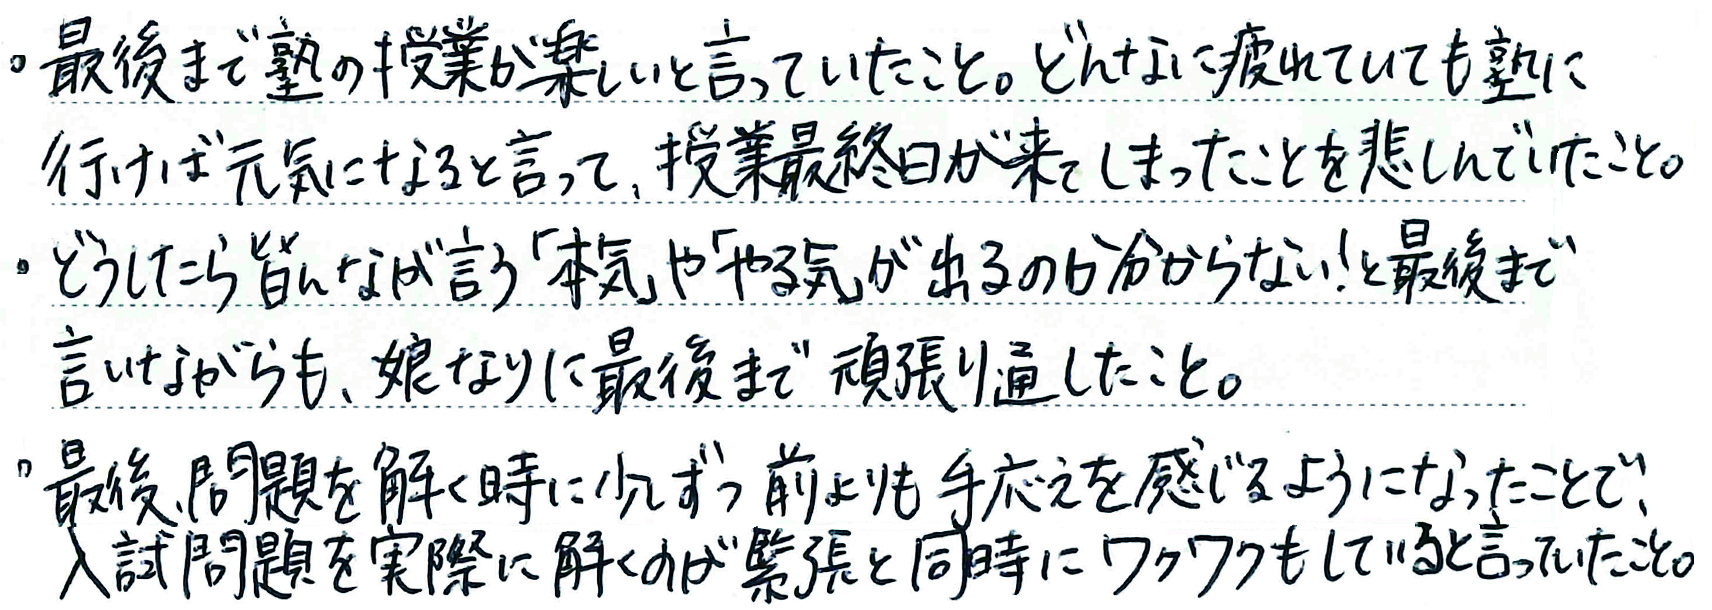 。最後まで塾の授業が楽しいと言っていたこと。どんなに疲れていても塾に
行けば元気になると言って、授業最終日が来てしまったことを悲しんでいたこと。
。どうしたら皆んなが言う「本気」や「やる気」が出るのか分からない!と最後まで
言いながらも、娘なりに最後まで頑張り通したこと。
。最後、問題を解く時に少しずつ前よりも手応えを感じるようになったことで、
入試問題を実際に解くのが緊張と同時にワクワクもしていると言っていたこと。